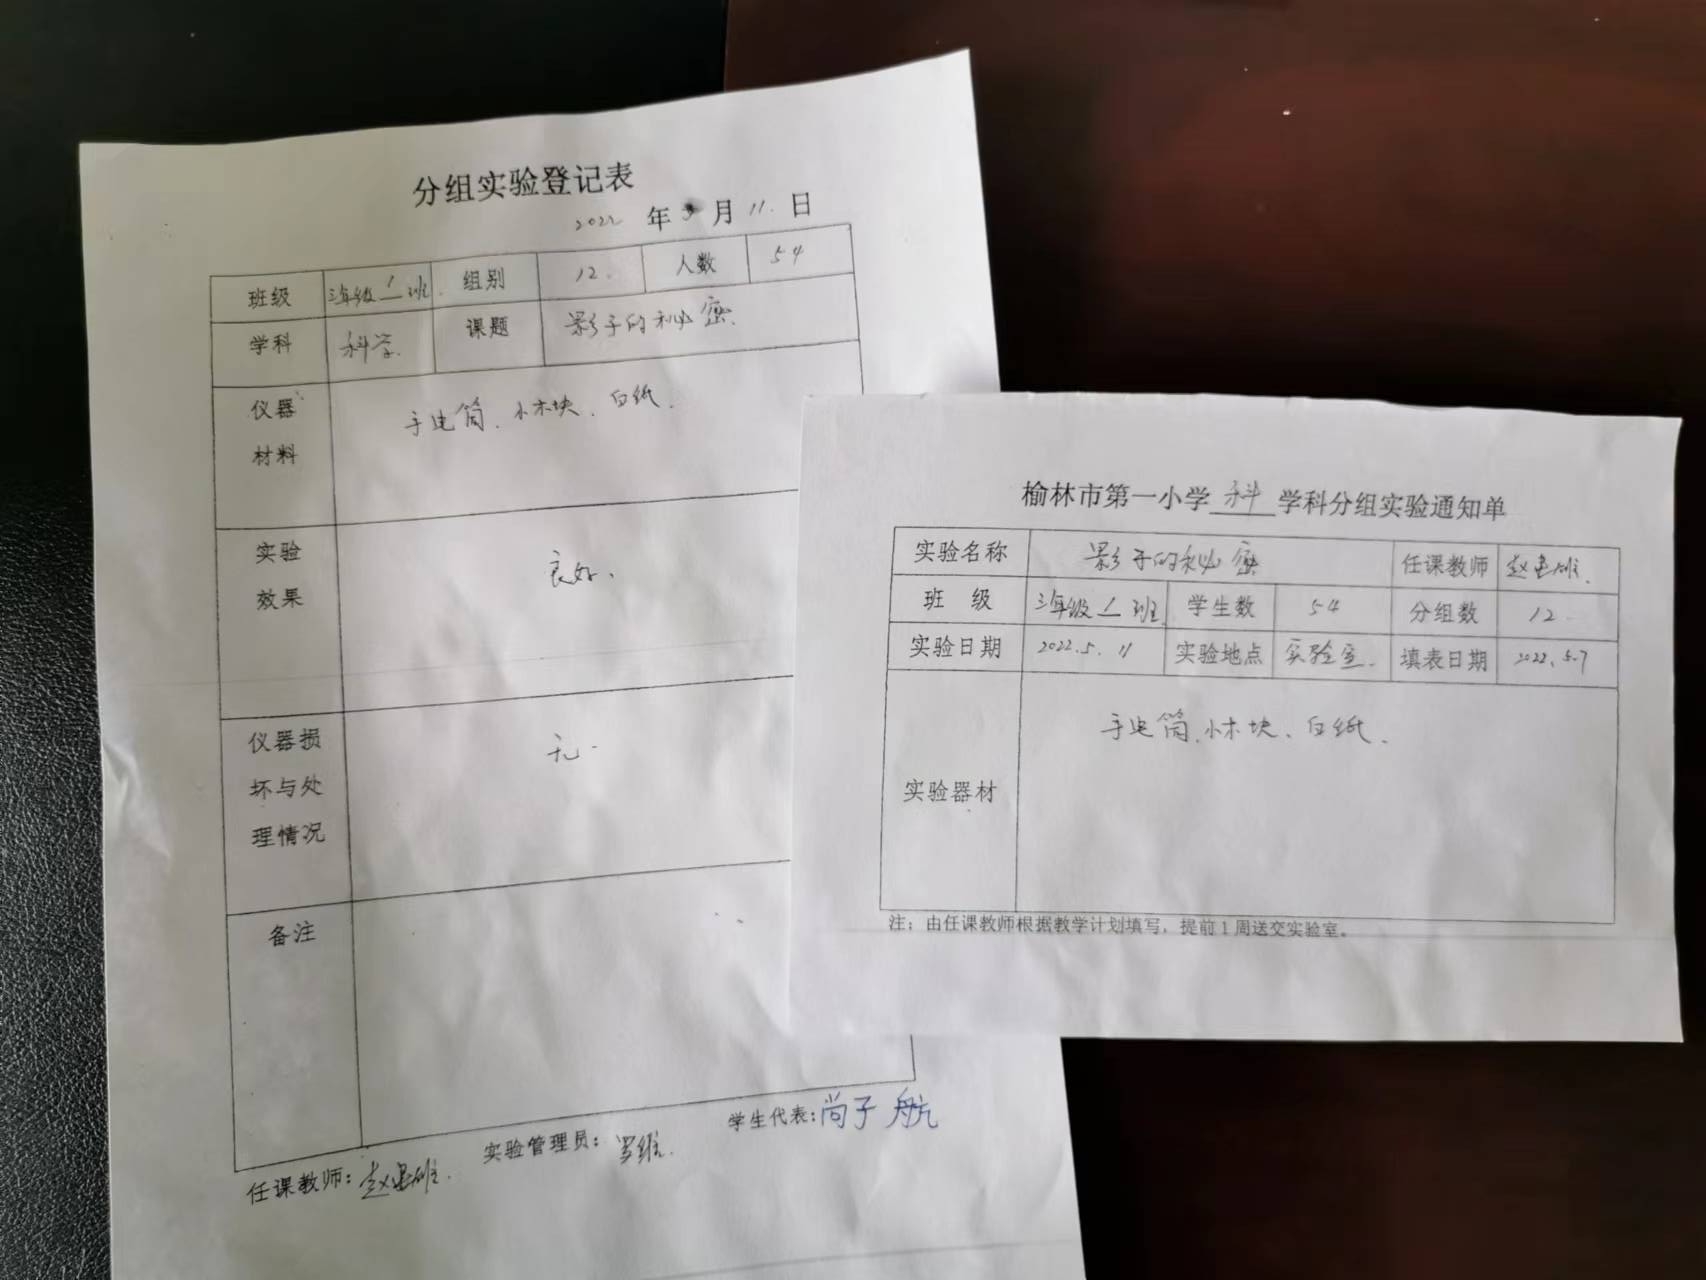 分组实验登记表
2022 年 5 月 11. 日
班级 三年级 1 班. 组别 12. 人数 54
学科 科学. 课题 影子的秘密.
仪器材料 手电筒、小木块、白纸.
实验效果 良好.
仪器损坏与处理情况 无.
备注
任课教师: 赵 雄.
实验管理员: 罗维.
学生代表: 尚子航
榆林市第一小学 科 学科分组实验通知单
实验名称 影子的秘密 任课教师 赵 雄.
班 级 三年级 1 班 学生数 54 分组数 12.
实验日期 2022.5.11 实验地点 实验室. 填表日期 2022.5.7
实验器材 手电筒、小木块、白纸.
注：由任课教师根据教学计划填写，提前1周送交实验室。